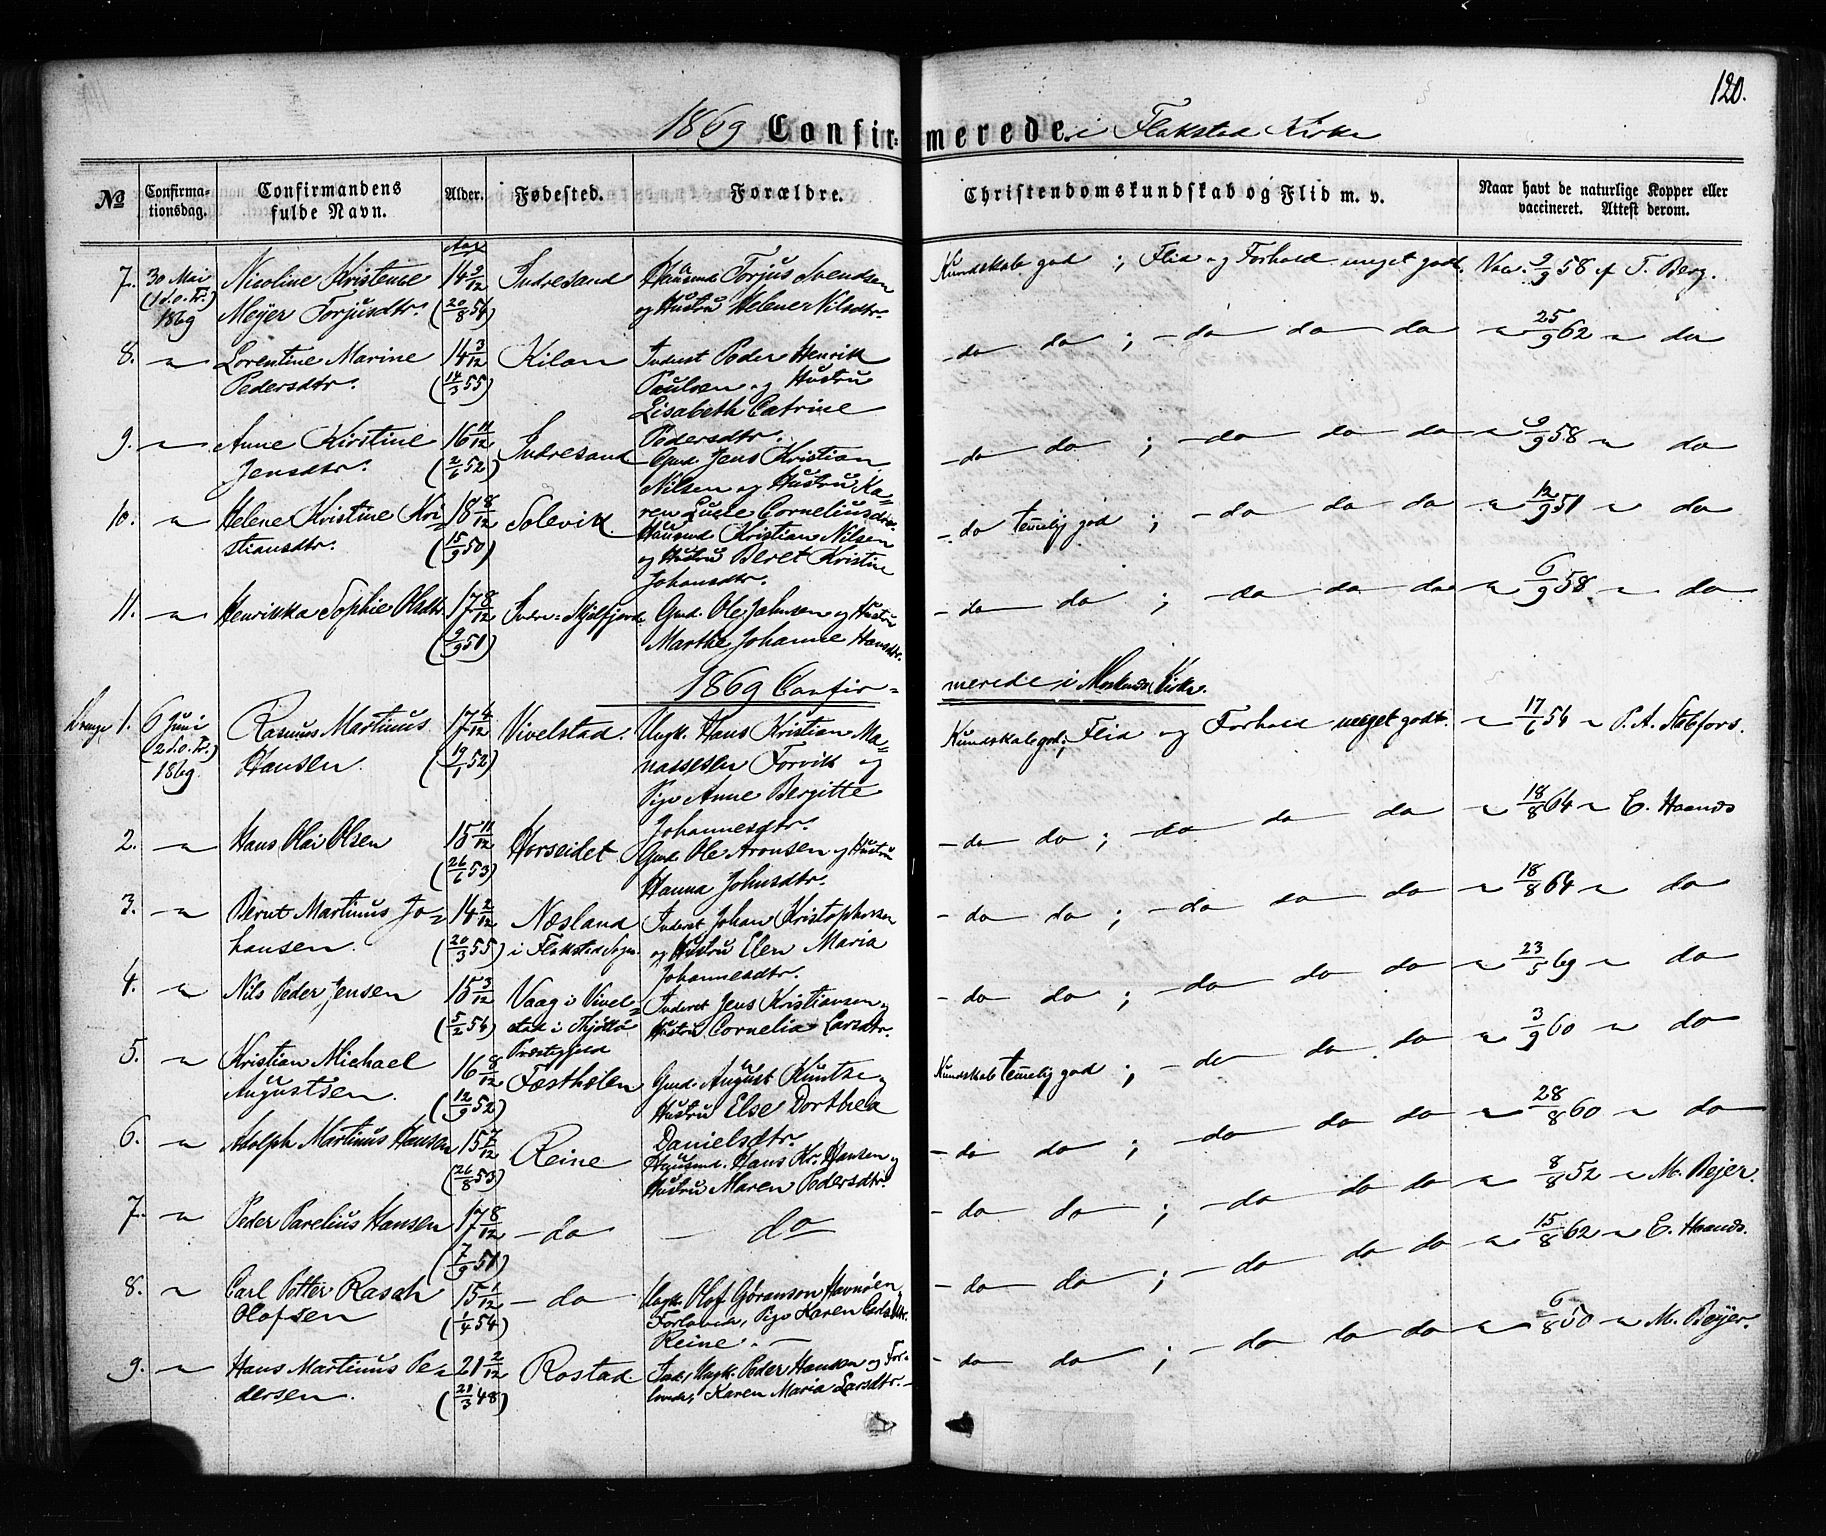 120.
1869 Confirmerede i Flakstad Kirke
No
Confirma-
tionsdag.
Confirmandens
fulde Navn.
Alder.
Fødested.
Forældre.
Christendomskundskab og Flid m. v.
Naar havt de naturlige Kopper eller
vaccineret. Attest derom.
Aar
7. 30 Mai Nicoline Kristence 14 9/12 Indresand Huusmd Torjus Svendsen Kundskab god ; Flid og Forhold meget godt. Vac. 9/9 58 af T. Berg.
(1 S.e.Tr.) Meyer Torjusdtr. (20/8 54) og Hustru Helene Nilsdtr.
1869
8. — " — Lorentine Marine 14 3/12 Kilan Inderst Peder Henrik — do do ; — do do do — " 25/9 62 " do
Pedersdtr. (14/3 55) Paulsen og Hustru
Lisabeth Catrine
Pedersdtr.
9. — " — Anne Kirstine 16 11/12 Indresand Gmd. Jens Kristian — do do ; — do do do — " 9/9 58 " do
Jensdtr. (2/6 52) Nilsen og Hustru Ka-
ren Lusie Corneliusdtr.
10. — " Helene Kristine Kri- 18 8/12 Solevik Huusmd Kristian Nilsen — do temelig god ; — do do do — " 12/9 51 " do
stiansdtr. (15/9 50) og Hustru Beret Kristine
Johansdtr.
11. — " — Henrikka Sophie Olsdtr 17 8/12 Indre-Skjelfjord. Gmd. Ole Johnsen og Hustru — do do ; — do do do — " 6/9 58 " do
(9/9 51) Marthe Johanne Hansdtr.
1869 Confirmerede i Moskenes Kirke.
Drenge 1. 6 Juni Rasmus Martinus 17 4/12 Vivelstad. Ungk. Hans Kristian Ma- Kundskab god; Flid og Forhold meget godt. — " 17/6 54 " P. A. Stobfors.
(2 S.e.Tr.) Hansen. (19/1 52) nassesen Forvik og
1869. Pige Anne Bergitte
Johannesdtr.
2. — " — Hans Olai Olsen 15 11/12 Horseidet Gmd. Ole Aronsen og Hustru — do do ; — do do do — " 18/8 64 " C. Haands
(26/6 53) Hanna Johnsdtr.
3. — " Bernt Martinus Jo- 14 2/12 Næsland Inderst Johan Kristophersen — do do ; — do do do — " 18/8 64 " do
hansen. (20/3 55) i Flakstad Sogn. og Hustru Elen Maria
Johannesdtr.
4. — " Nils Peder Jensen 15 3/12 Vaag i Vivel- Inderst Jens Kristiansen og — do do ; — do do do — " 23/5 69 " do
(5/2 54) stad i Tjøttø Hustru Cornelia Larsdtr.
Præstegjeld
5. — " Kristian Michael 16 8/12 Fæsthølen Gmd. August Kuntze og Kundskab temelig god ; — do do do — " 3/9 60 " do
Augustsen. (12/9 52) Hustru Else Dorthea
Danielsdtr.
6. — " Adolph Martinus Hansen 15 7/12 Reine Huusmd. Hans Kr. Hansen og — do do ; — do do do — " 28/8 60 " do
(26/8 53) Hustru Maren Pedersdtr.
7. — " Peder Parelius Hansen 17 8/12 — do — do — do do ; — do do do — " 8/8 52 " M. Bejer.
(7/9 51)
8. — " Carl Potter Rasch 15 1/12 — do Ungk. Olof Göranson Havnøen, — do do ; — do do do — " 15/8 62 " C. Haands.
Olofsen (1/4 54) Forlovede, Pige Karen Carlsdtr.
Reine. —
9. — " Hans Martinus Pe- 21 2/12 Rostad. Ind., Ungk. Peder Hansen og For- — do do ; — do do do — " 6/8 50 " M. Bejer.
dersen. (21/3 48) lovede, Karen Maria Larsdtr. —